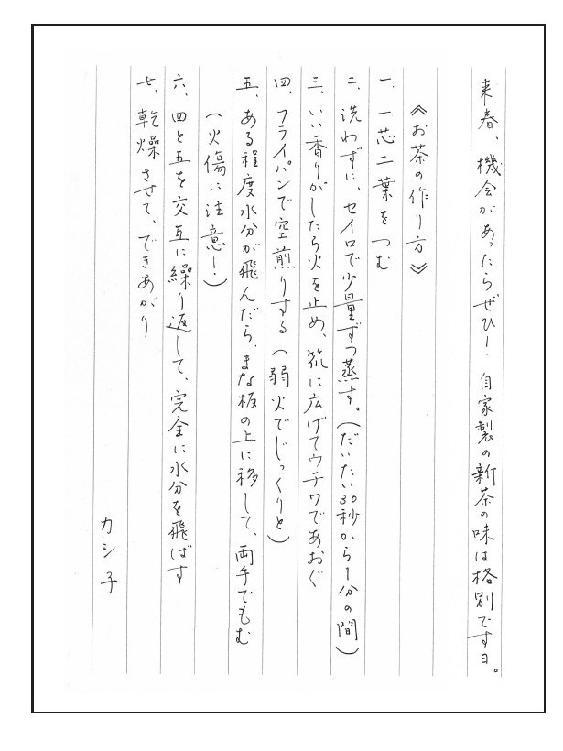 来春、機会があったらぜひ！自家製の新茶の味は格別ですヨ。
《お茶の作り方》
一、一芯二葉をつむ
二、洗わずに、セイロで少量ずつ蒸す。（だいたい30秒から1分の間）
三、いい香りがしたら火を止め、笊に広げてウチワであおぐ
四、フライパンで空煎りする（弱火でじっくりと）
五、ある程度水分が飛んだら、まな板の上に移して、両手でもむ
（火傷に注意！）
六、四と五を交互に繰り返して、完全に水分を飛ばす
七、乾燥させて、できあがり
カシ子